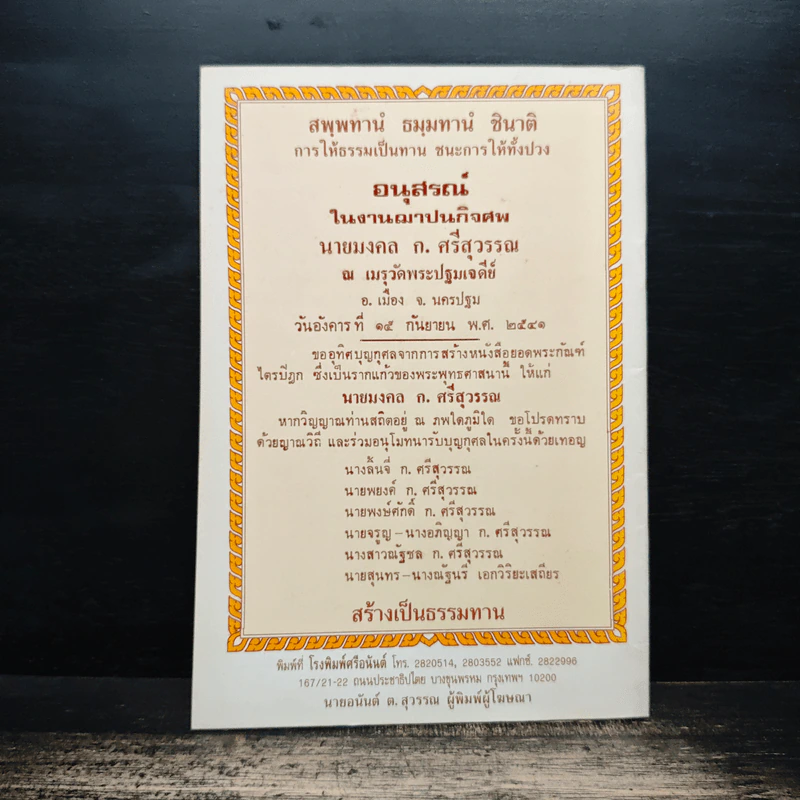 สพฺพทานํ ธมฺมทานํ ชินาติ
การให้ธรรมเป็นทาน ชนะการให้ทั้งปวง
อนุสรณ์
ในงานฌาปนกิจศพ
นายมงคล ก. ศรีสุวรรณ
ณ เมรุวัดพระปฐมเจดีย์
อ. เมือง จ. นครปฐม
วันอังคารที่ ๑๕ กันยายน พ.ศ. ๒๕๔๑
ขออุทิศบุญกุศลจากการสร้างหนังสือยอดพระกัณฑ์
ไตรปิฎก ซึ่งเป็นรากแก้วของพระพุทธศาสนานี้ ให้แก่
นายมงคล ก. ศรีสุวรรณ
หากวิญญาณท่านสถิตอยู่ ณ ภพใดภูมิใด ขอโปรดทราบ
ด้วยญาณวิถี และร่วมอนุโมทนารับบุญกุศลในครั้งนี้ด้วยเทอญ
นางลิ้นจี่ ก. ศรีสุวรรณ
นายพยงค์ ก. ศรีสุวรรณ
นายพงษ์ศักดิ์ ก. ศรีสุวรรณ
นายจรูญ–นางอภิญญา ก. ศรีสุวรรณ
นางสาวณัฐชล ก. ศรีสุวรรณ
นายสุนทร–นางณัฐนรี เอกวิริยะเสถียร
สร้างเป็นธรรมทาน
พิมพ์ที่ โรงพิมพ์ศรีอนันต์ โทร. 2820514, 2803552 แฟกซ์. 2822996
167/21-22 ถนนประชาธิปไตย บางขุนพรหม กรุงเทพฯ 10200
นายอนันต์ ต. สุวรรณ ผู้พิมพ์ผู้โฆษณา